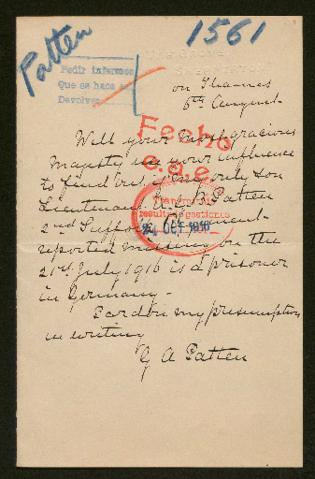 Patten
1561
Pedir informes
Que se hace
Devolver
on Thames
6th August
Will your most gracious
Majesty use your influence
to find if my only son
Lieutenant Patten
2nd Suffolk Regiment
reported missing on the
21st July 1916 is a prisoner
in Germany -
Pardon my presumption
in writing
G A Patten
Fecho
resultas gestiones
24 OCT 1916